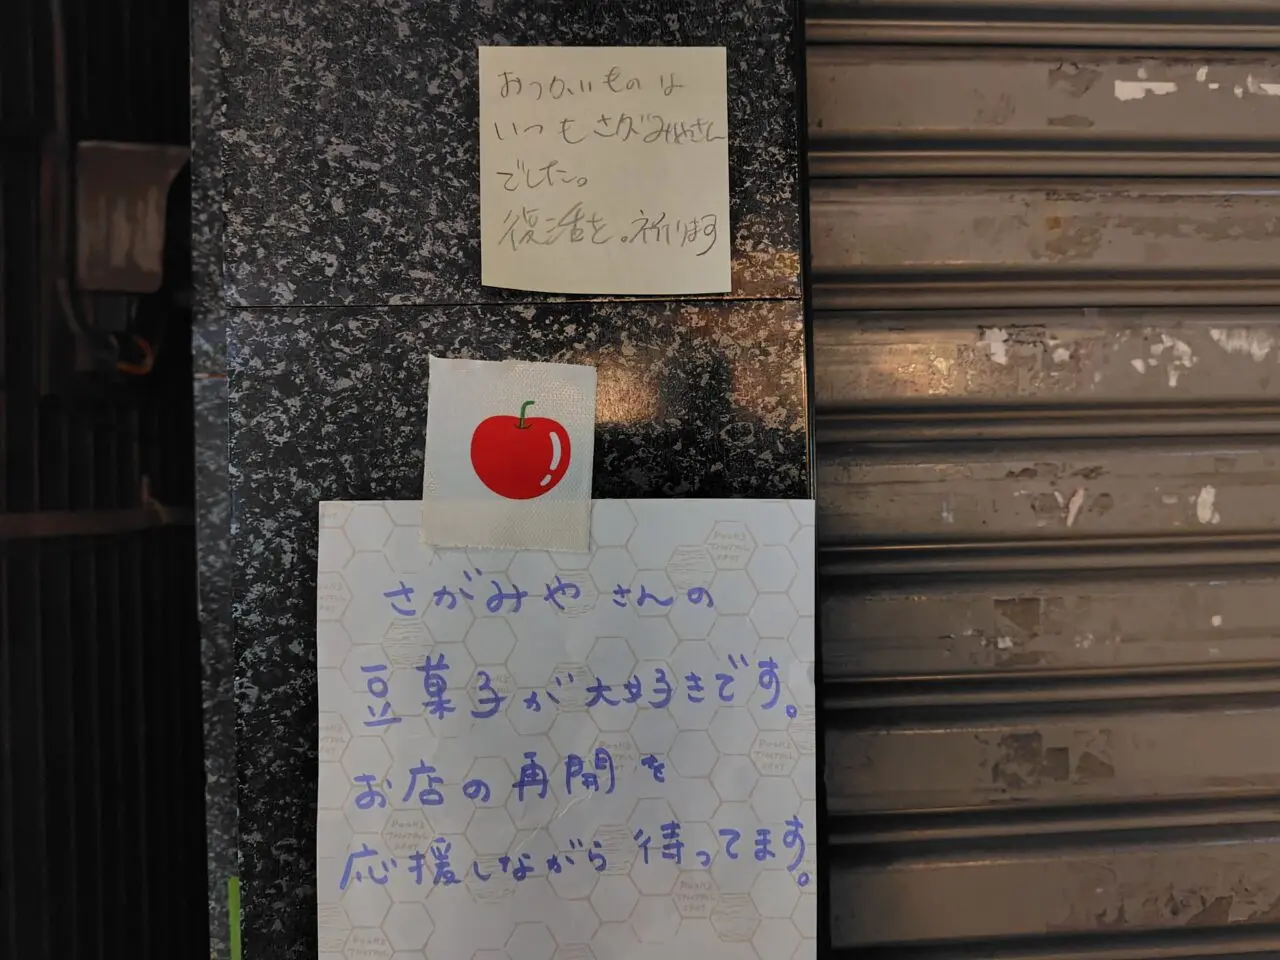 おつかいものは
いつもさがみやさん
でした。
復活を。祈ります
さがみやさんの
豆菓子が大好きです。
お店の再開を
応援しながら待ってます。